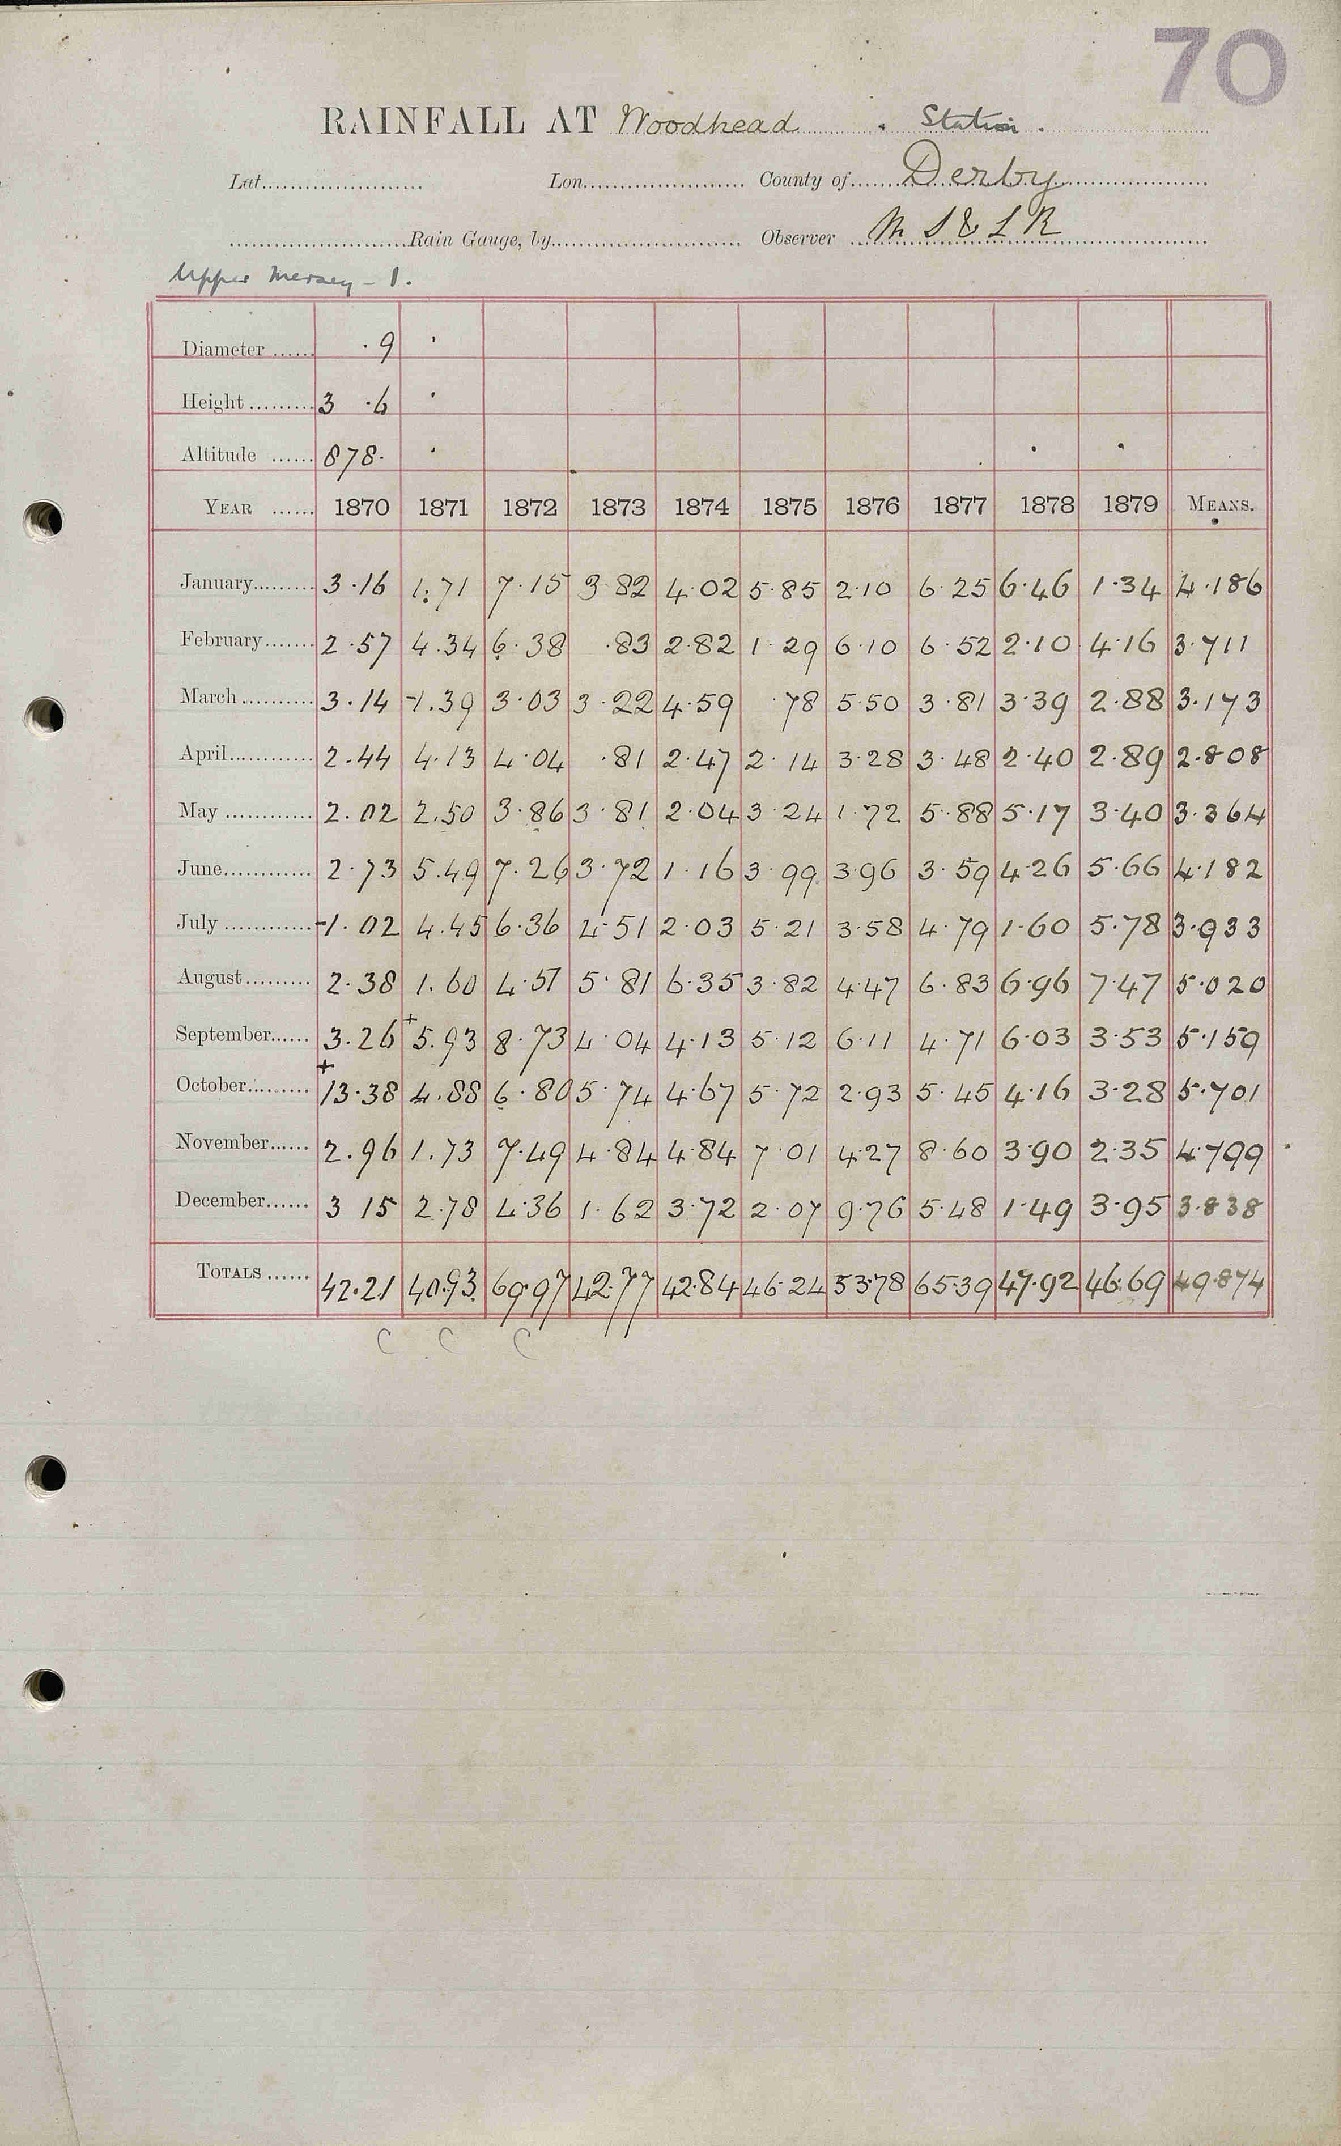 70
RAINFALL AT Woodhead . Station .
Lat. Lon. County of Derby
Rain Gauge, by Observer M S & L R
Upper Mersey - 1.
Diameter ...... ·9
Height ......... 3 ·6
Altitude ...... 878·
YEAR ...... 1870 1871 1872 1873 1874 1875 1876 1877 1878 1879 MEANS.
January......... 3·16 1.71 7·15 3 82 4·02 5·85 2·10 6·25 6·46 1·34 4·186
February....... 2·57 4.34 6·38 ·83 2·82 1·29 6·10 6·52 2·10 4·16 3·711
March........... 3·14 -1.39 3·03 3·22 4·59 ·78 5·50 3·81 3·39 2·88 3·173
April............ 2·44 4·13 4·04 ·81 2·47 2·14 3·28 3·48 2·40 2·89 2·808
May ............ 2·02 2.50 3·86 3·81 2·04 3·24 1·72 5·88 5·17 3·40 3·364
June............ 2·73 5.49 7·26 3·72 1·16 3·99 3·96 3·59 4·26 5·66 4·182
July ............ -1·02 4.45 6·36 4·51 2·03 5·21 3·58 4·79 1·60 5·78 3·933
August......... 2·38 1.60 4·51 5·81 6·35 3·82 4·47 6·83 6·96 7·47 5·020
September...... 3·26 +5.93 8·73 4·04 4·13 5·12 6·11 4·71 6·03 3·53 5·159
October......... +13·38 4.88 6·80 5·74 4·67 5·72 2·93 5·45 4·16 3·28 5·701
November...... 2·96 1.73 7·49 4·84 4·84 7·01 4·27 8·60 3·90 2·35 4·799
December...... 3 15 2·78 4·36 1·62 3·72 2·07 9·76 5·48 1·49 3·95 3·838
TOTALS ...... 42·21 40·93 69·97 42·77 42·84 46·24 53·78 65·39 47·92 46·69 49·874
C C C